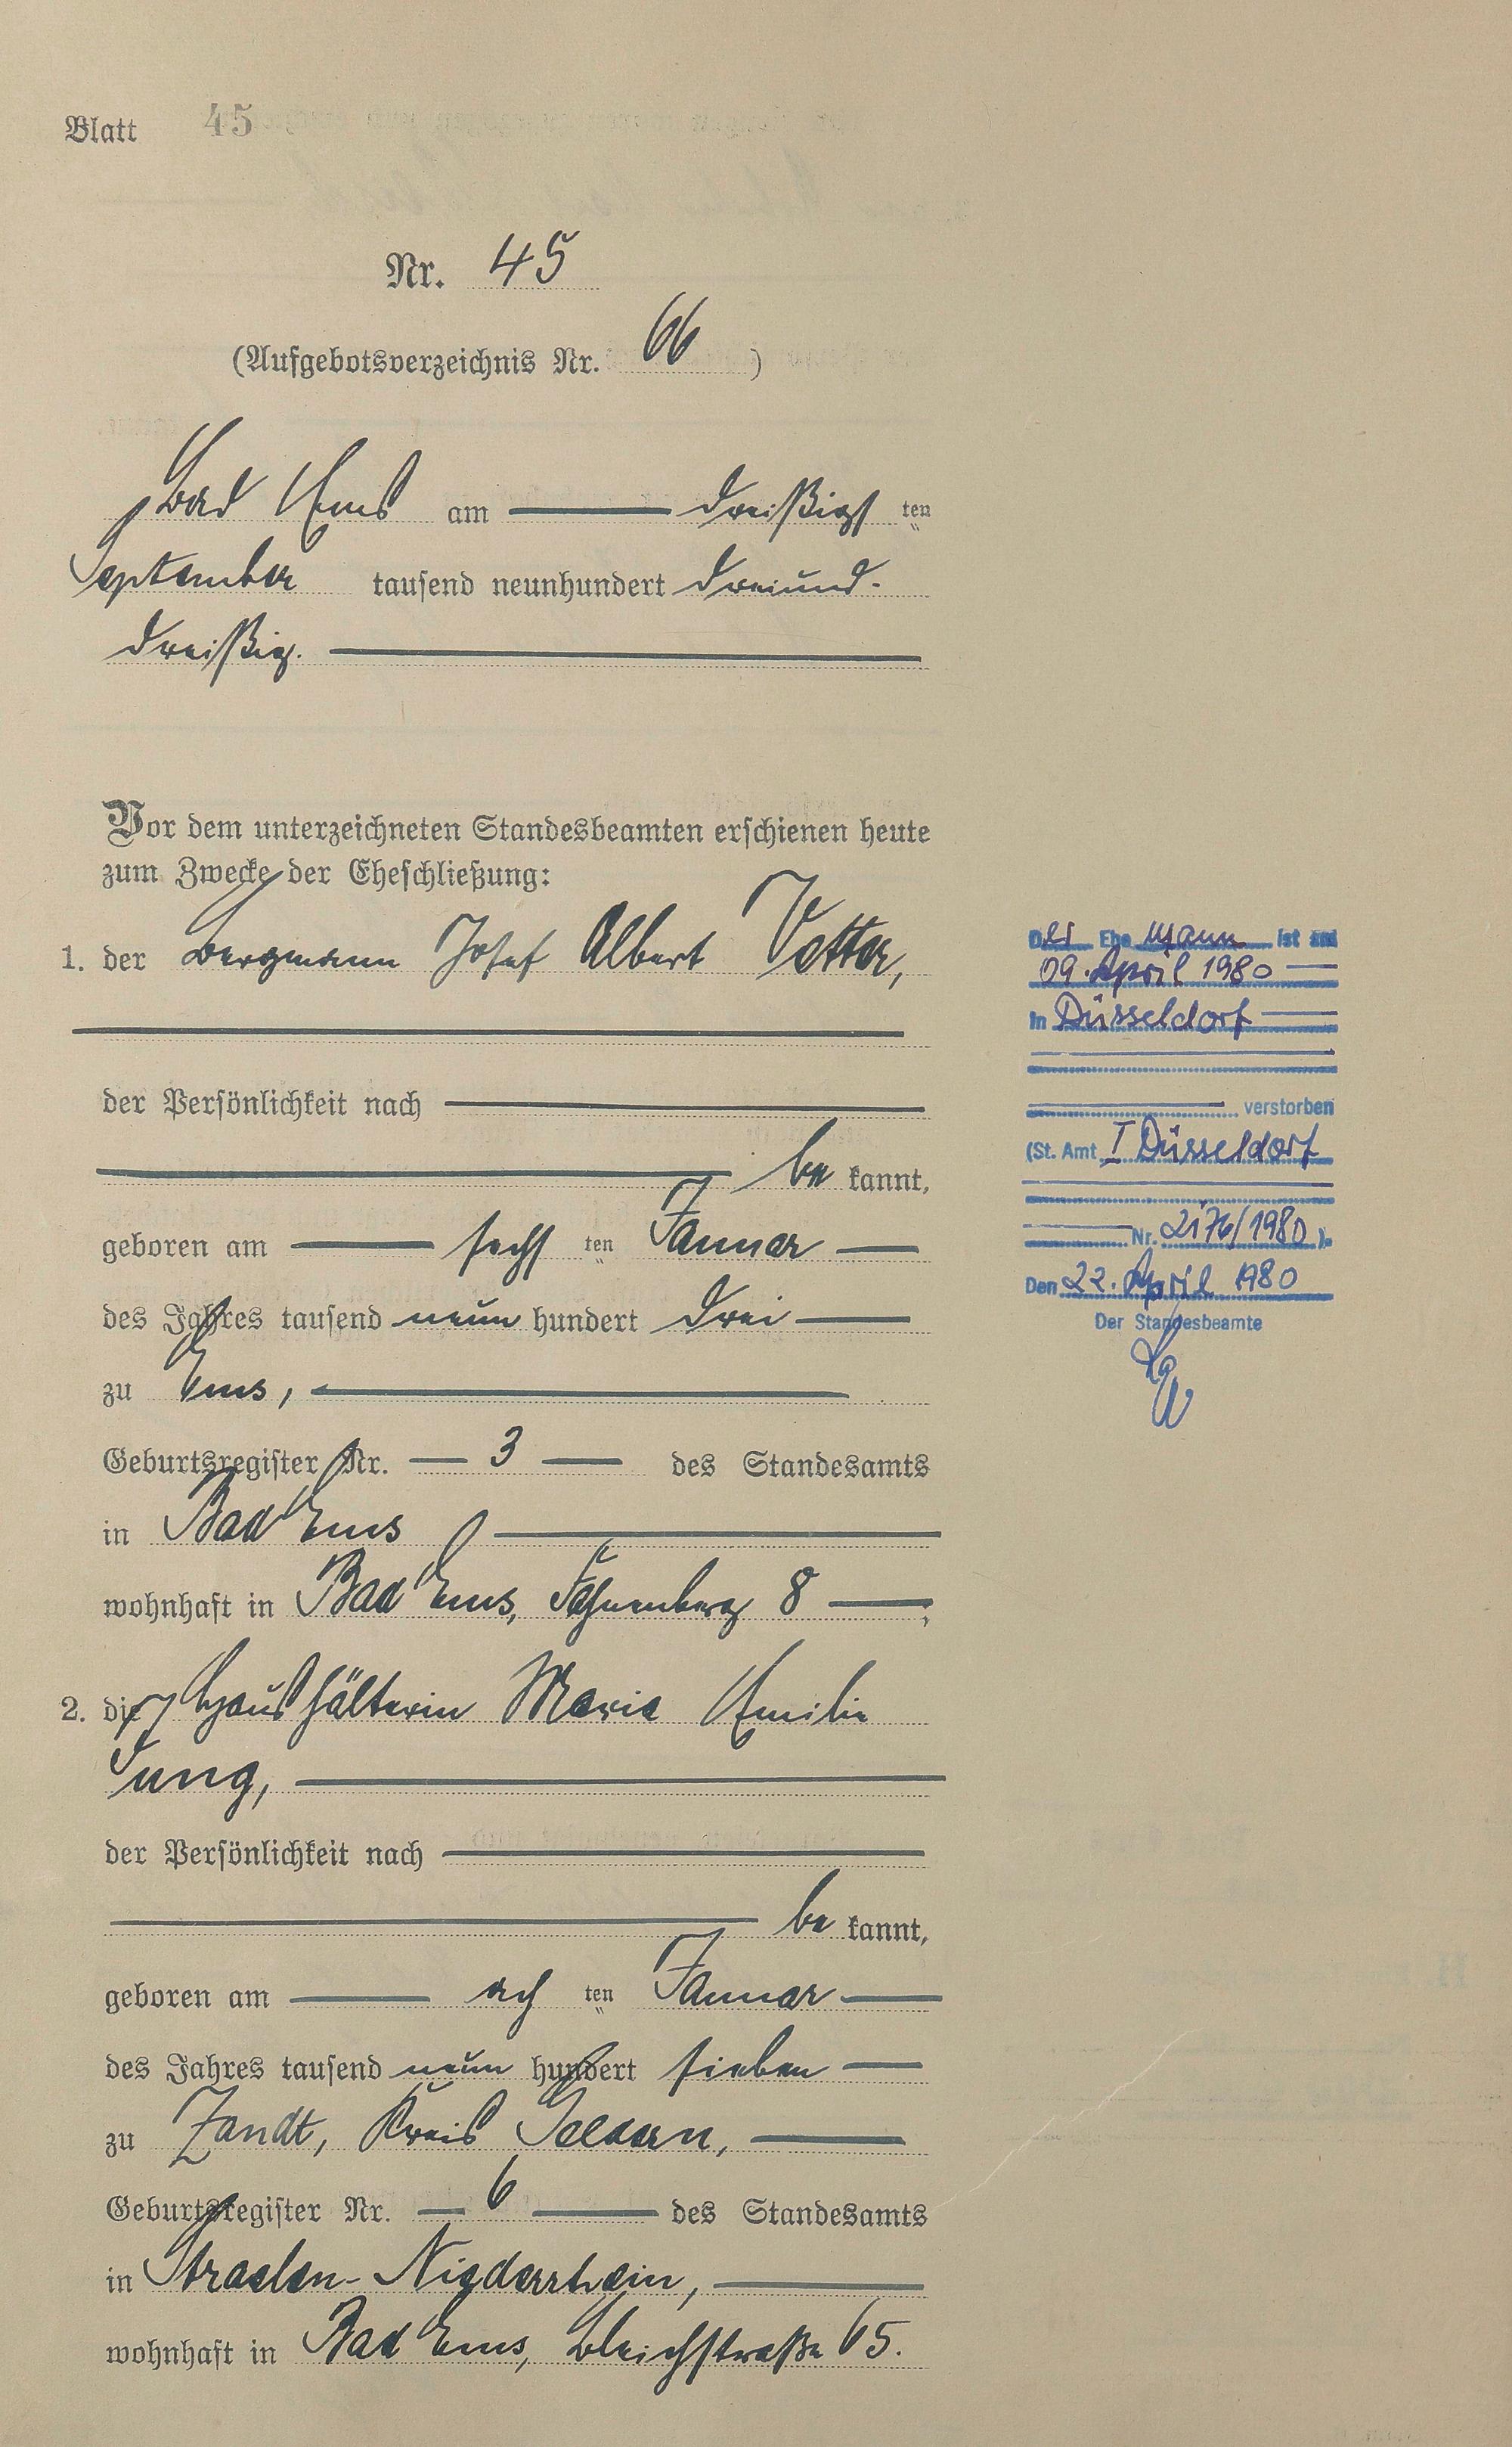 Blatt 45
Nr. 45
(Aufgebotsverzeichnis Nr. 66)
Bad Ems am dreißigsten
September tausend neunhundert dreiund-
dreißig.
Vor dem unterzeichneten Standesbeamten erschienen heute
zum Zwecke der Eheschließung:
1. der Bergmann Josef Albert Vetter,
der Persönlichkeit nach
be kannt,
geboren am sechsten Januar
des Jahres tausend neun hundert drei
zu Ems,
Geburtsregister Nr. 3 des Standesamts
in Bad Ems
wohnhaft in Bad Ems, Fahnenberg 8,
2. die Haushälterin Maria Emilie
Jung,
der Persönlichkeit nach
be kannt,
geboren am achten Januar
des Jahres tausend neun hundert sieben
zu Zandt, Kreis Geldern,
Geburtsregister Nr. 6 des Standesamts
in Straelen-Niederrhein,
wohnhaft in Bad Ems, Bleichstraße 65.
Der Ehe mann ist am
09. April 1980
in Düsseldorf
verstorben
(St. Amt I Düsseldorf
Nr. 2176/1980).
Den 22. April 1980
Der Standesbeamte